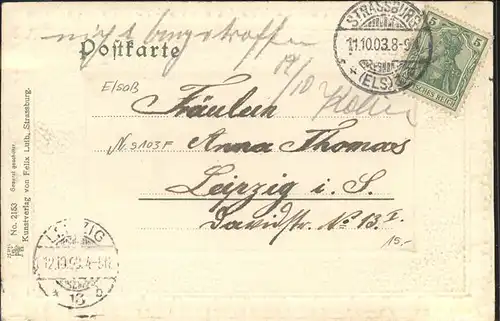 nicht angetroffen
Postkarte
14/10
STRASSBURG
11.10.03. 8-9
(ELS)
5
5
DEUTSCHES REICH
Elsaß
Fräulein
N 9103F
Anna Thomas
Leipzig i. S.
Davidstr. No 13 I.
15,-
LEIPZIG
12.10.03. 4-5
13
No. 2153
Kunstverlag von Felix Luib, Strassburg.